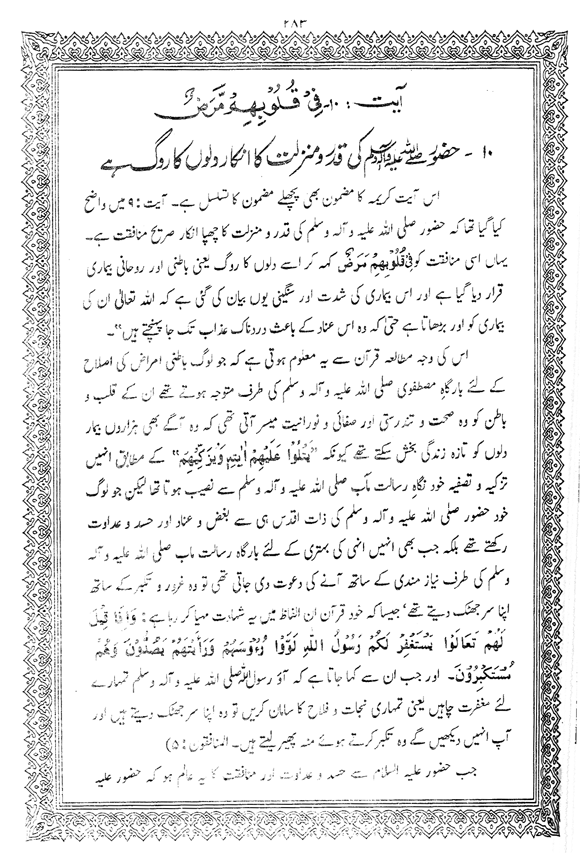 ۲۸۳
آیت : ۱۰- فِیْ قُلُوْبِهِمْ مَّرَضٌ
۱۰ - حضور ﷺ کی قدر و منزلت کا انکار دلوں کا روگ ہے
اس آیت کریمہ کا مضمون بھی پچھلے مضمون کا تسلسل ہے۔ آیت : ۹ میں واضح
کیا گیا تھا کہ حضور صلی اللہ علیہ و آلہ وسلم کی قدر و منزلت کا چھپا انکار صریح منافقت ہے۔
یہاں اسی منافقت کو فِیْ قُلُوْبِهِمْ مَرَضٌ کہہ کر اسے دلوں کا روگ یعنی باطنی اور روحانی بیماری
قرار دیا گیا ہے اور اس بیماری کی شدت اور سنگینی یوں بیان کی گئی ہے کہ اللہ تعالیٰ ان کی
بیماری کو اور بڑھاتا ہے حتیٰ کہ وہ اس عناد کے باعث دردناک عذاب تک جا پہنچتے ہیں"۔
اس کی وجہ مطالعہ قرآن سے یہ معلوم ہوتی ہے کہ جو لوگ باطنی امراض کی اصلاح
کے لئے بارگاہ مصطفوی صلی اللہ علیہ و آلہ وسلم کی طرف متوجہ ہوتے تھے ان کے قلب و
باطن کو وہ صحت و تندرستی اور صفائی و نورانیت میسر آتی تھی کہ وہ آگے بھی ہزاروں بیمار
دلوں کو تازہ زندگی بخش سکتے تھے کیونکہ "یَتْلُوْا عَلَیْهِمْ اٰیٰتِهٖ وَیُزَکِّیْهِمْ" کے مطابق انہیں
تزکیہ و تصفیہ خود نگاہ رسالت مآب صلی اللہ علیہ و آلہ وسلم سے نصیب ہوتا تھا لیکن جو لوگ
خود حضور صلی اللہ علیہ و آلہ وسلم کی ذات اقدس ہی سے بغض و عناد اور حسد و عداوت
رکھتے تھے بلکہ جب بھی انہیں انہی کی بہتری کے لئے بارگاہ رسالت ماب صلی اللہ علیہ و آلہ
وسلم کی طرف نیاز مندی کے ساتھ آنے کی دعوت دی جاتی تھی تو وہ غرور و تکبر کے ساتھ
اپنا سر جھٹک دیتے تھے' جیسا کہ خود قرآن ان الفاظ میں یہ شہادت مہیا کر رہا ہے : وَاِذَا قِیْلَ
لَهُمْ تَعَالَوْا یَسْتَغْفِرْ لَکُمْ رَسُوْلُ اللّٰهِ لَوَّوْا رُءُوْسَهُمْ وَرَاَیْتَهُمْ یَصُدُّوْنَ وَهُمْ
مُّسْتَکْبِرُوْنَ۔ اور جب ان سے کہا جاتا ہے کہ آؤ رسول اللہ صلی اللہ علیہ و آلہ وسلم تمہارے
لئے مغفرت چاہیں یعنی تمہاری نجات و فلاح کا سامان کریں تو وہ اپنا سر جھٹک دیتے ہیں اور
آپ انہیں دیکھیں گے وہ تکبر کرتے ہوئے منہ پھیر لیتے ہیں۔ المنافقون : ۵)
جب حضور علیہ السلام سے حسد و عداوت اور منافقت کا یہ عالم ہو کہ حضور علیہ